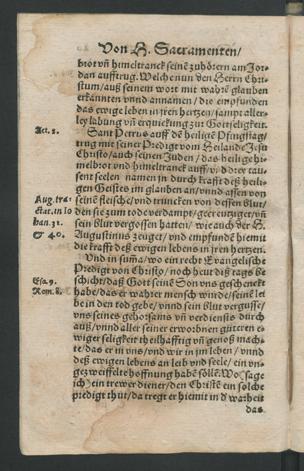 Von H. Sacramenten/
brot vñ himeltranck seinē zuhörern am Jor-
dan aufftrug. Welche nun den Herrn Chri-
stum/ auß seinem wort mit wahrē glauben
erkannten vnnd annamen/ die empfunden
das ewige leben in jren hertzen/ sampt aller-
ley labung vñ erquickung zur Gottseligkeit.
Act. 2.
Sant Petrus auff dē heiligē Pfingstag/
trug mit seiner Predigt vom Heiland Jesu
Christo/ auch seinen Juden/ das heilige hi-
melbrot vnd himeltranck auff/ vñ drey tau-
sent seelen namen in durch krafft deß heili-
gen Geistes im glauben an/ vnnd assen von
seinē fleische/ vnd truncken von dessen blut/
Aug. tra-
ctat. in Io
han. 31.
& 40.
den sie zum tode verdampt/ gecreutziget/ vñ
sein blut vergossen hatten/ wie auch der H.
Augustinus zeuget/ vnd empfund hiemit
die krafft deß ewigen lebens in jren hertzen.
Und in suma/ wo ein recht Euangelische
Predigt von Christo/ noch heut diß tags be
Esa. 9.
Rom. 8.
schicht/ daß Gott seinē Son vns geschenckt
habe/ das er wahrer mensch wurde/ seinē lei
be in den tod gebe/ vnnd sein blut vergüsse/
vns seines gehorsams vñ verdiensts durch
auß/ vnnd aller seiner erworbnen gütern e-
wiger seligkeit theilhafftig vñ genoß mach-
te/ das er in vns/ vnd wir in jm leben/ vnnd
deß ewigen lebens an leib vnd seele/ ein vn-
gezweiffelte hoffnung habē söllē. Wo (sage
ich) ein trewer diener/ den Christē ein solche
predigt thut/ da tregt er hiemit in d warheit
das